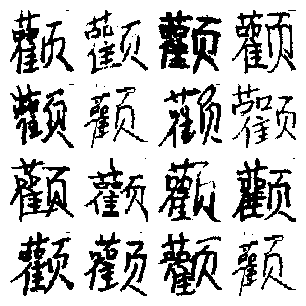 颧颧颧颧
颧颧颧颧
颧颧颧颧
颧颧颧颧